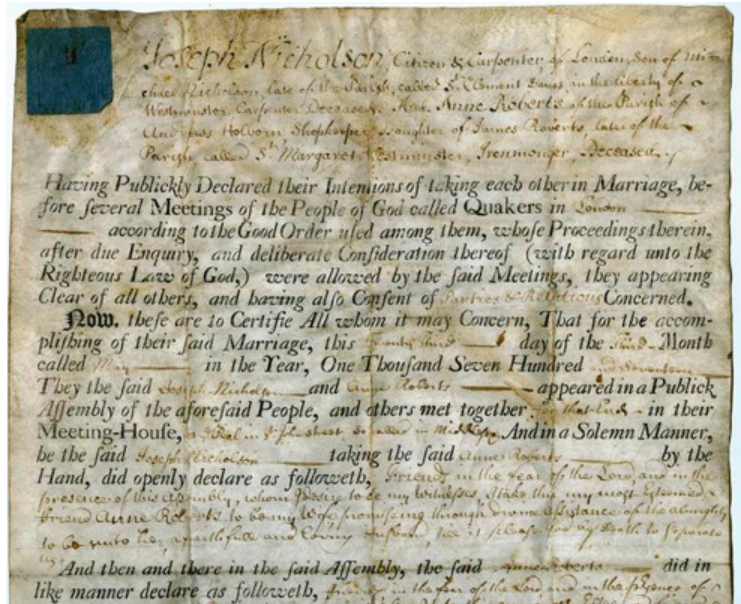 Joseph Nicholson, Citizen & Carpenter of London, Son of Mi-
chael Nicholson, late of the Parish, called St. Clement Danes, in the liberty of
Westminster, Carpenter Deceased. And Anne Roberts of the Parish of
Andrews Holborn Shopkeeper, Daughter of James Roberts, late of the
Parish called St. Margaret Westminster, Ironmonger, Deceased.
Having Publickly Declared their Intentions of taking each other in Marriage, be-
fore ſeveral Meetings of the People of God called Quakers in London
according to the Good Order uſed among them, whoſe Proceedings therein,
after due Enquiry, and deliberate Conſideration thereof (with regard unto the
Righteous Law of God,) were allowed by the ſaid Meetings, they appearing
Clear of all others, and having alſo Conſent of Parties & Relations Concerned.
Now, theſe are to Certifie All whom it may Concern, That for the accom-
pliſhing of their ſaid Marriage, this Twenty third day of the third Month
called May in the Year, One Thouſand Seven Hundred and Seventeen
They the ſaid Joseph Nicholson and Anne Roberts appeared in a Publick
Aſſembly of the aforeſaid People, and others met together for that End in their
Meeting-Houſe, in St. John street so called in Middlesex And in a Solemn Manner,
he the ſaid Joseph Nicholson taking the ſaid Anne Roberts by the
Hand, did openly declare as followeth, Friends in the fear of the Lord, and in the
presence of this Assembly, whom I desire to be my Witnesses, I take this my most Esteemed
Friend Anne Roberts to be my Wife promising through divine assistance of the Almighty
to be unto her a faithfull and Loving Husband, till it please God by Death to separate
us
And then and there in the ſaid Aſſembly, the ſaid Anne Roberts did in
like manner declare as followeth, Friends in the fear of the Lord and in the presence of